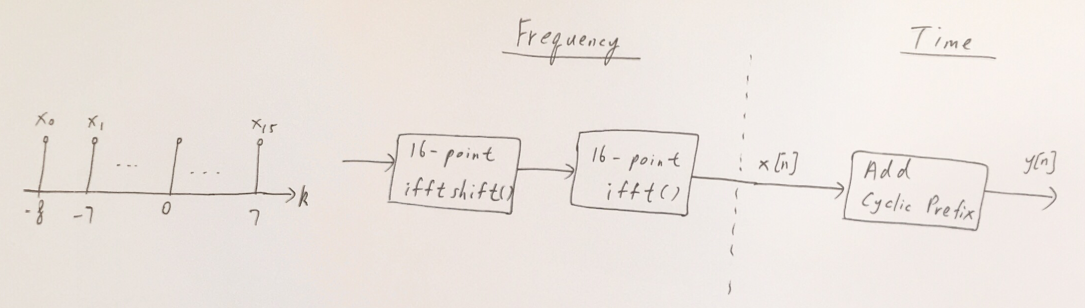 Frequency
Time
x₀ x₁ ... ... x₁₅
-8 -7 0 7 k
16-point
ifftshift()
16-point
ifft()
x[n]
Add
Cyclic Prefix
y[n]